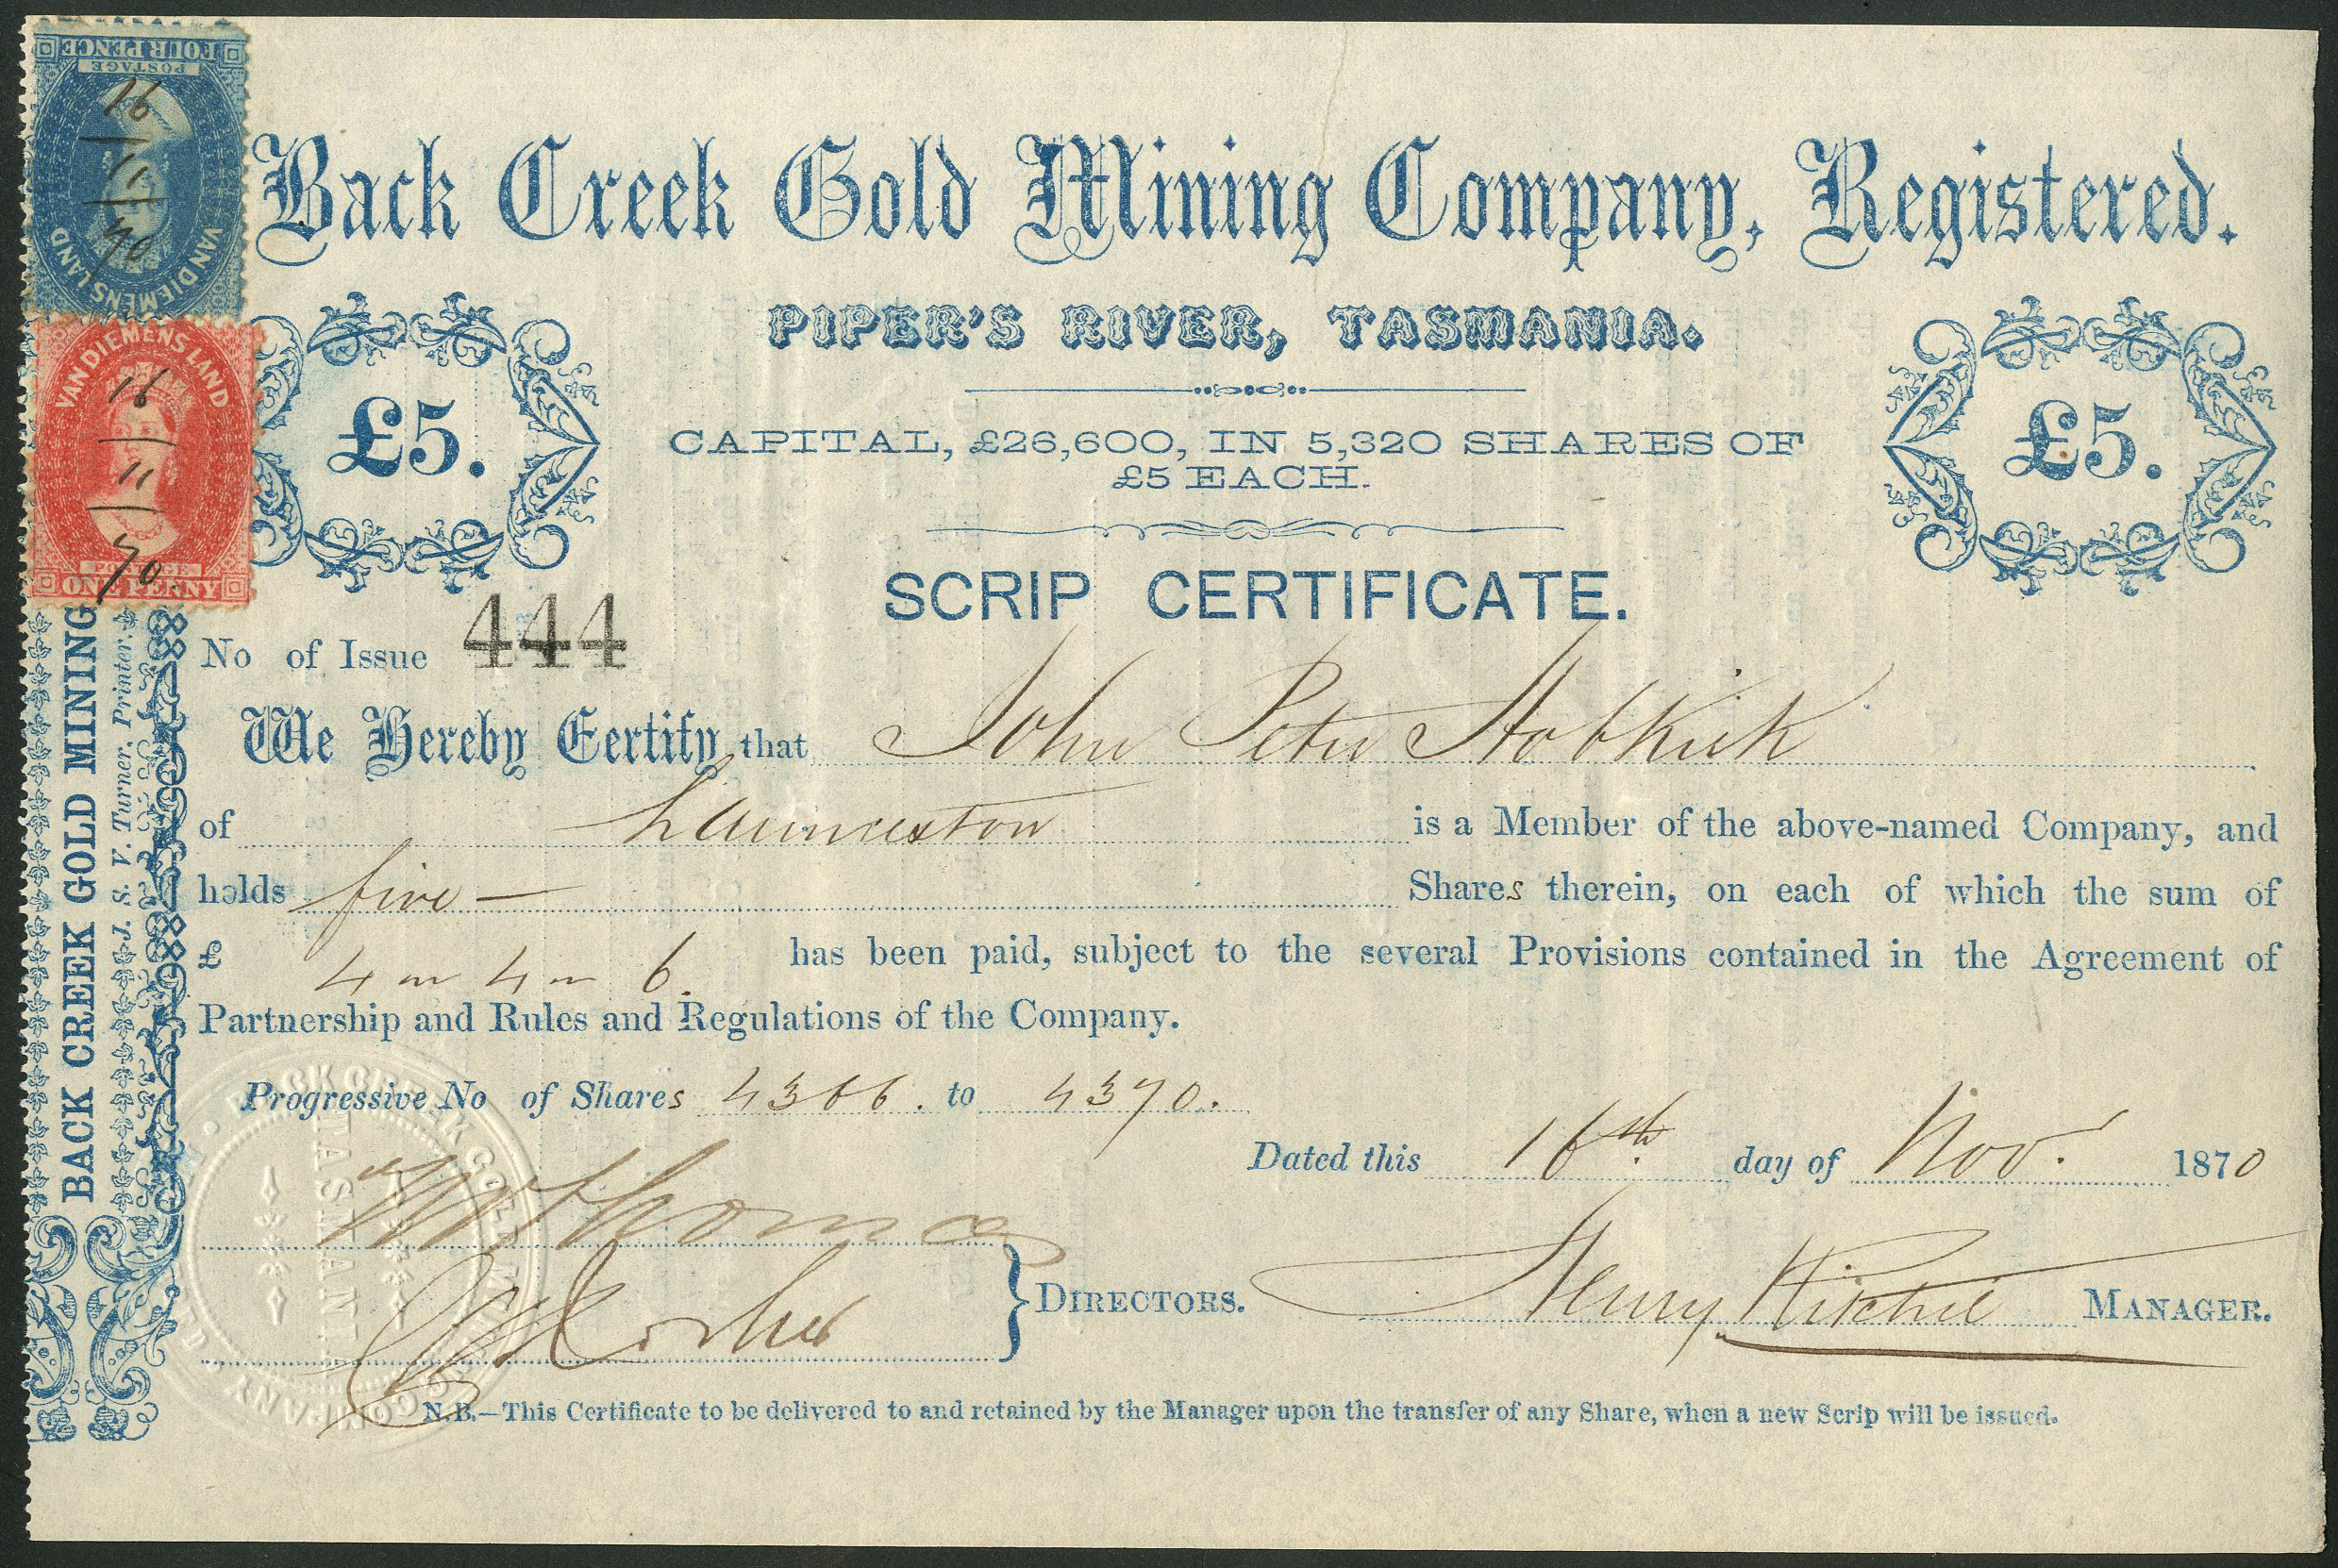 FOUR PENCE
POSTAGE
16
11
70
VAN DIEMENS LAND
VAN DIEMENS LAND
16
11
70
POSTAGE
ONE PENNY
Back Creek Gold Mining Company, Registered.
PIPER'S RIVER, TASMANIA.
£5.
CAPITAL, £26,600, IN 5,320 SHARES OF
£5 EACH.
£5.
SCRIP CERTIFICATE.
No of Issue 444
We Hereby Certify that John Peter Hobkirk
of Launceston is a Member of the above-named Company, and
holds five — Shares therein, on each of which the sum of
£ 4 " 4 " 6. has been paid, subject to the several Provisions contained in the Agreement of
Partnership and Rules and Regulations of the Company.
Progressive No of Shares 4366. to 4370.
Dated this 16th day of Nov. 1870
Thomas
DIRECTORS.
Henry Ritchie MANAGER.
N.B.—This Certificate to be delivered to and retained by the Manager upon the transfer of any Share, when a new Scrip will be issued.
BACK CREEK GOLD MINING
J. S. V. Turner, Printer.
BACK CREEK GOLD MINING COMPANY
TASMANIA